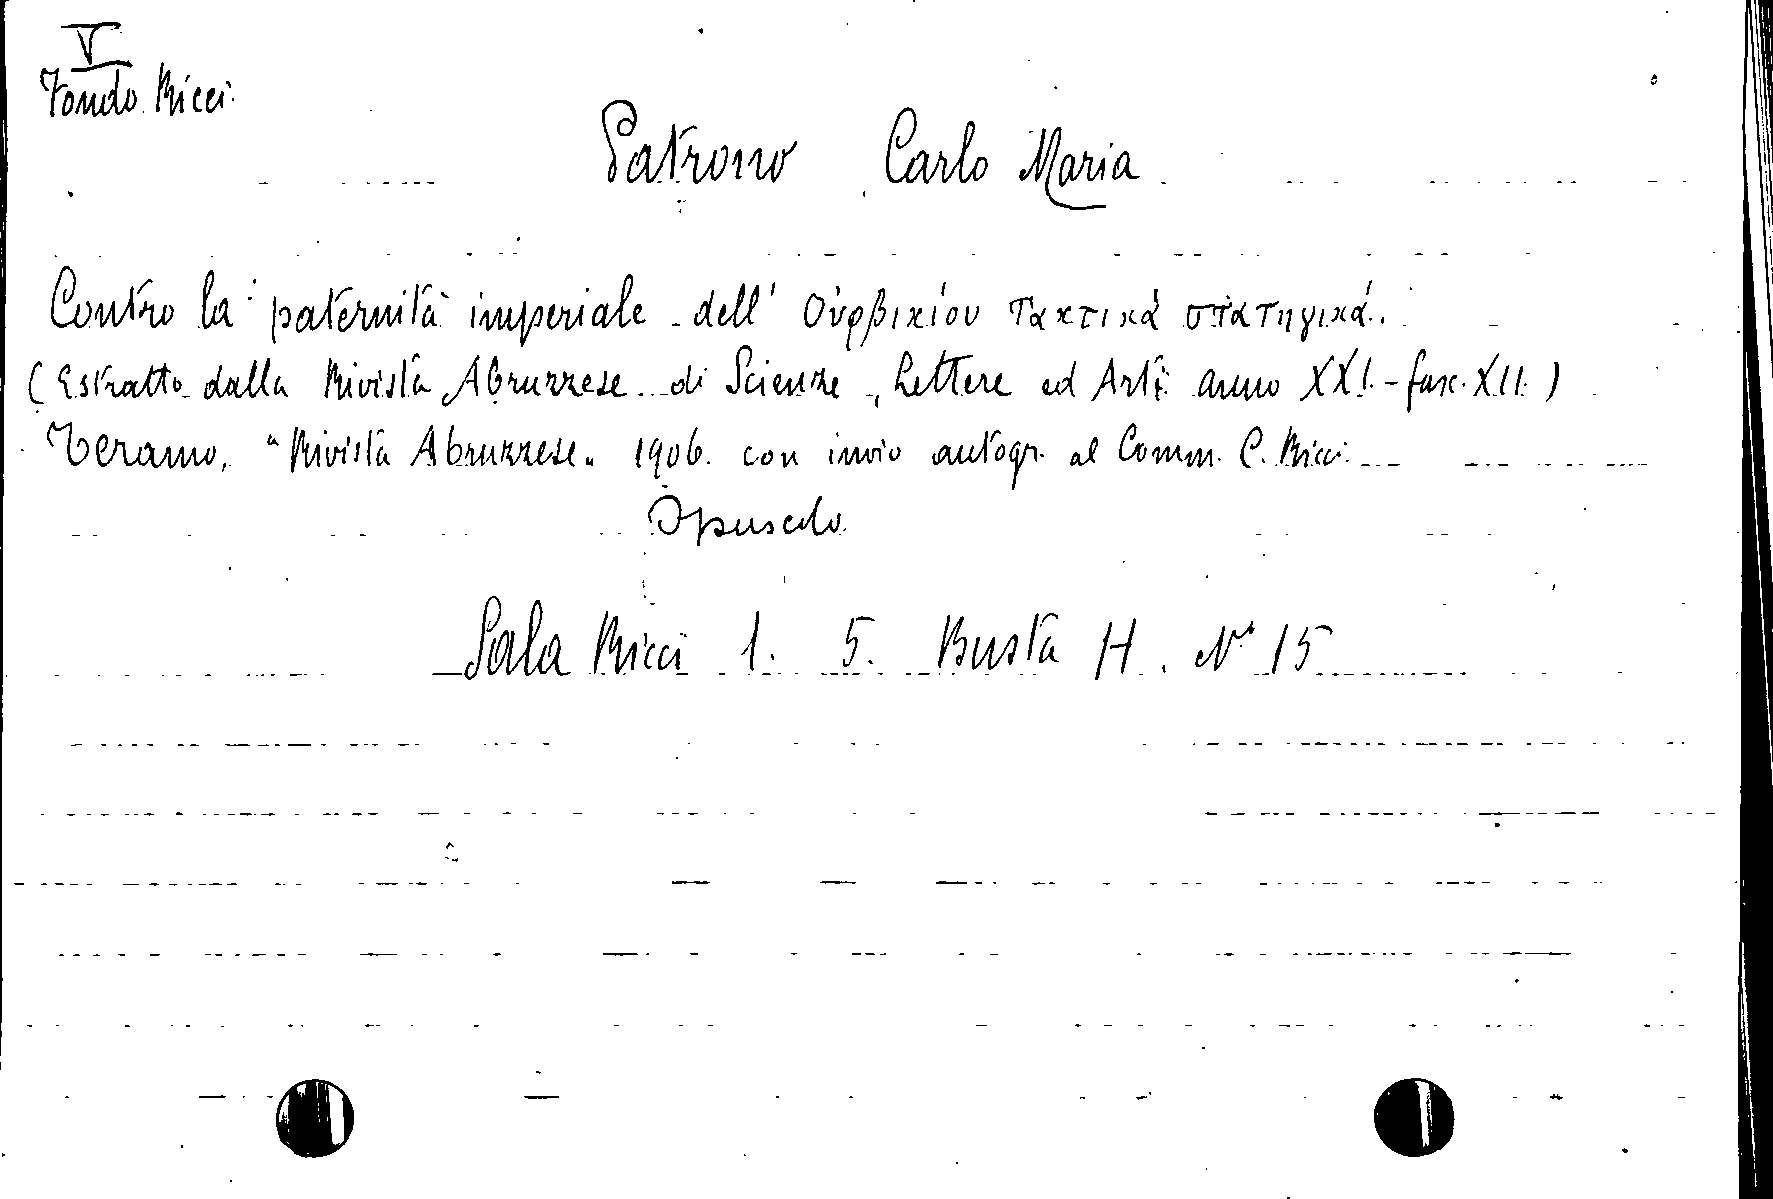 V
Fondo Ricci.
Patrono Carlo Maria
Contro la paternità imperiale dell' Οὐρβικίου τακτικά στατηγικά.
(Estratto dalla Rivista Abruzzese di Scienze, Lettere ed Arti anno XXI. - fasc. XII.)
Teramo, "Rivista Abruzzese" 1906. con invio autogr. al Comm. C. Ricci.
Opuscolo
Sala Ricci 1. 5. Busta H. N° 15